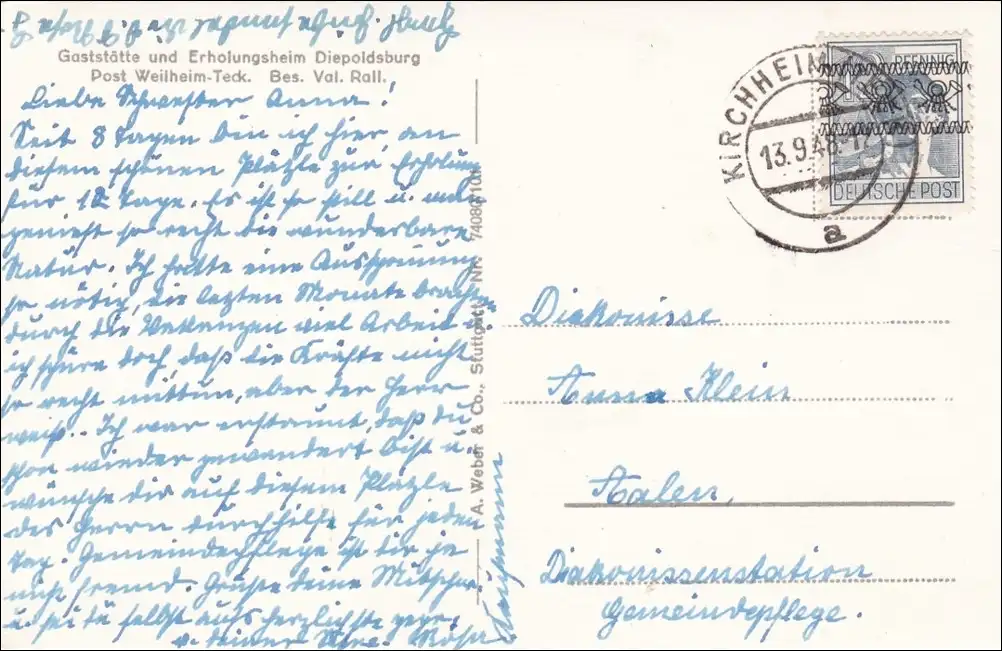 Gaststätte und Erholungsheim Diepoldsburg
Post Weilheim-Teck. Bes. Val. Rall.
Liebe Schwester Anna!
Seit 8 Tagen bin ich hier, an
diesem schönen Plätzle zur Erholung
für 12 Tage. Es ist so still u. man
genießt so recht die wunderbare
Natur. Ich hatte eine Ausspannung
so nötig, die letzten Monate brachten
durch die Vakanzen viel Arbeit u.
ich spüre doch, daß die Kräfte nicht
so recht mittun, aber der Herr
weiß. Ich war erstaunt, daß du
schon wieder gewandert bist u.
wünsche dir auf diesem Plätzle
des Herrn Durchhilfe für jeden
Tag. Gemeindepflege ist dir ja
nicht fremd. Grüße deine Mitschw.
u. sei du selbst aufs herzlichste gegr.
v. deiner Schw. Rosa
A. Weber & Co., Stuttgart Nr. 74080
KIRCHHEIM
13.9.48.-17
a
PFENNIG
12
DEUTSCHE POST
Diakonisse
Anna Klein
Aalen,
Diakonissenstation
Gemeindepflege.